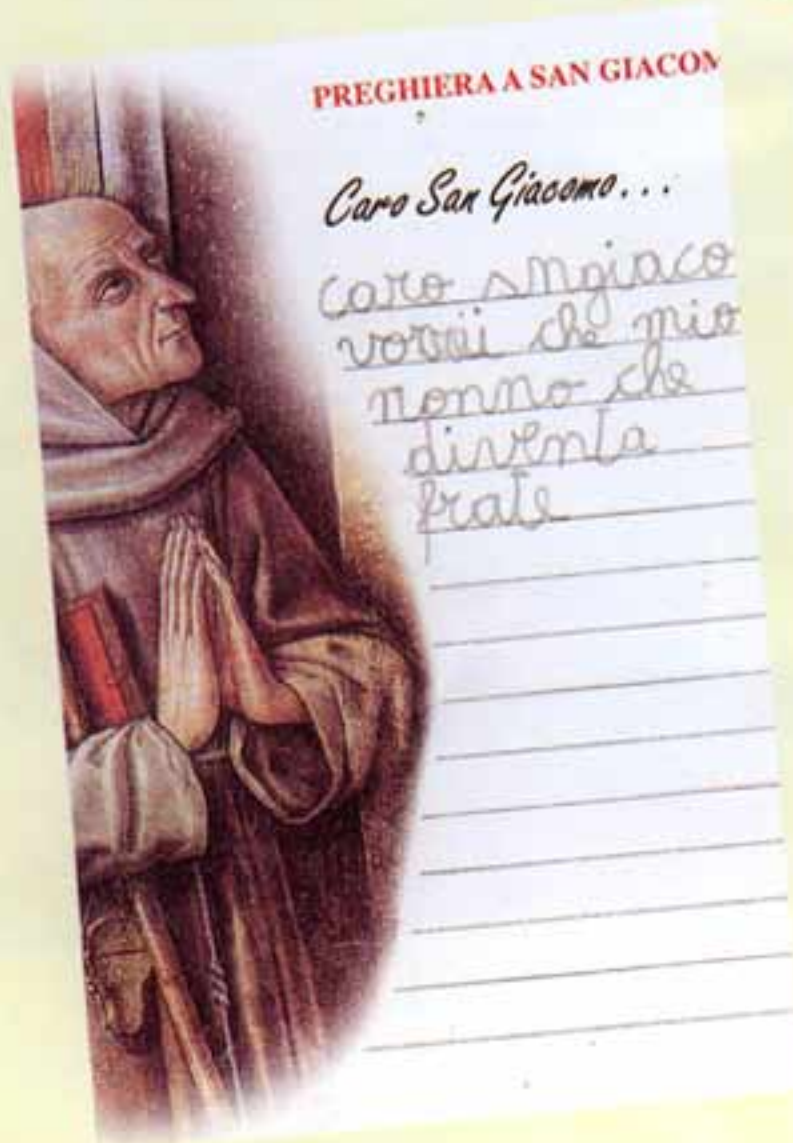 PREGHIERA A SAN GIACOM
Caro San Giacomo...
caro sngiaco
vorrei che mio
nonno che
diventa
frate